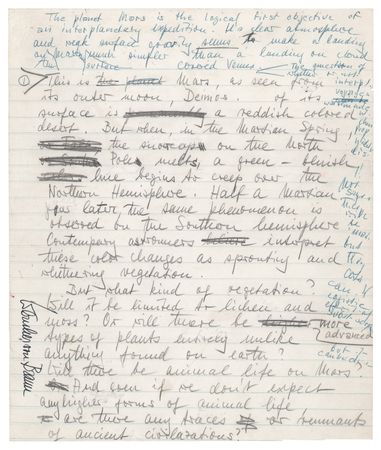 The planet Mars is the logical first objective of
an interplanetary expedition. It's clear atmosphere
and weak surface gravity seems to make a landing
on Mars much simpler than a landing on cloud
covered Venus. The question is
surface
whether or not
① This is Mars, as seen from
its outer moon, Deimos. of its
surface is a reddish colored
desert. But when, in the Martian Spring,
the snowcaps on the North
Pole melts, a green - bluish
hue begins to creep over the
Northern Hemisphere. Half a Martian
year later, the same phenomenon is
observed on the Southern hemisphere
Contempory astronomers interpret
these color changes as sprouting and
whithering vegetation.
But what kind of vegetation?
Will it be limited to lichen and
moss? Or will there be more
advanced
types of plants entirely unlike
anything found on earth?
Will there be animal life on Mars?
And even if we don't expect
any higher forms of animal life,
are there any traces or remnants
of ancient civilizations?
but
Wernher von Braun